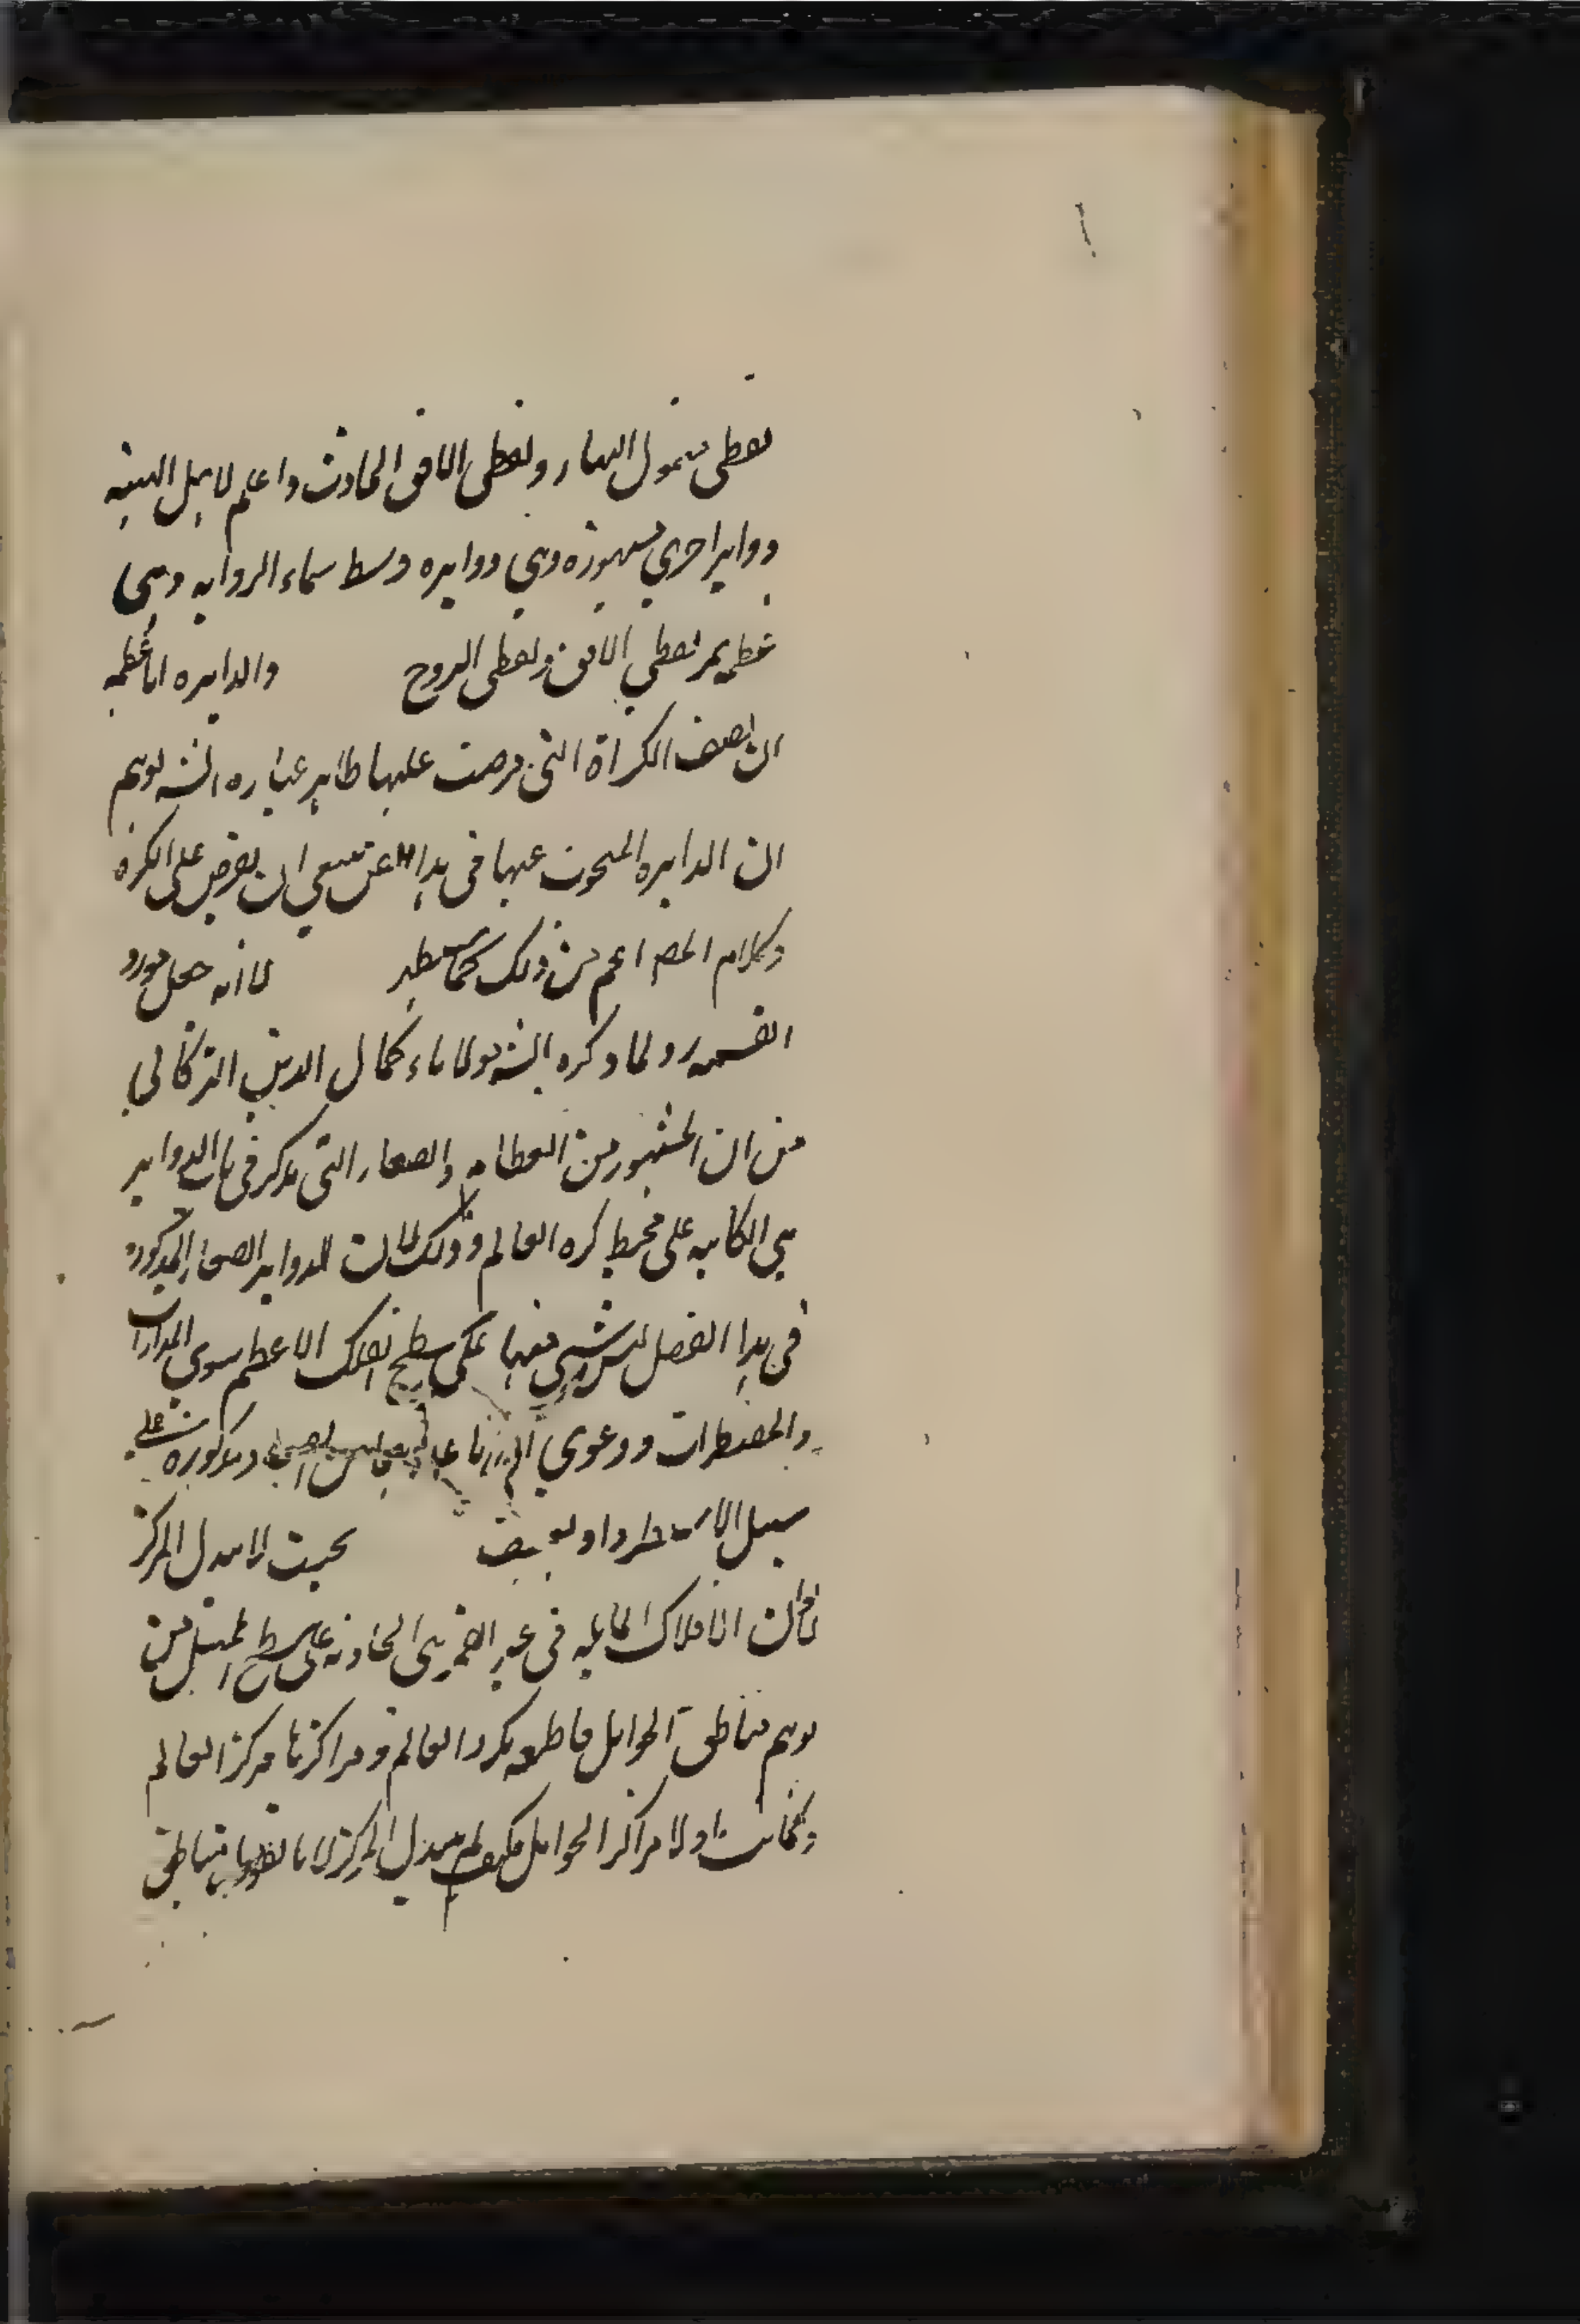 نقطى سمول النهار ونقطى الافق الحادث واعلم لاهل الهيئة
دواير اخرى مشهورة وهي دوايره وسط سماء الرواية وهي
عظيمة يمر بقطبي الافق وبقطبى البروج والدايره اما عظيمة
ان نصف الكراة التي فرضت عليها ظاهر عباره الشه يوهم
ان الدايره المبحوث عنها في هذا الفن ينبغي ان يفرض على الكره
وكلام المصـ اعم من ذلك كما سيظهر لا انه جعل مورد
القسمة ولما ذكره الشه مولاناء كمال الدين التركاني
من ان المشهور من العظام والصغار التي يذكر في باب الدواير
هي الكاينه على محيط كره العالم وذلك لان الدواير الصغار المذكوره
في هذا الفصل ليس شيء منها على سطح الفلك الاعظم سوى المدارات
والمقنطرات ودعوى مذكوره على
سبيل الاستطراد او بحيث لا يتبدل المركز
فان الافلاك المايله في غير القمر هي الحادثه على سطح الممثل من
توهم مناطق الحوامل قاطعه لكره العالم ومراكزها مركز العالم
وكانت اولا مراكز الحوامل فكيف لم يتبدل المركز لانا مناطق